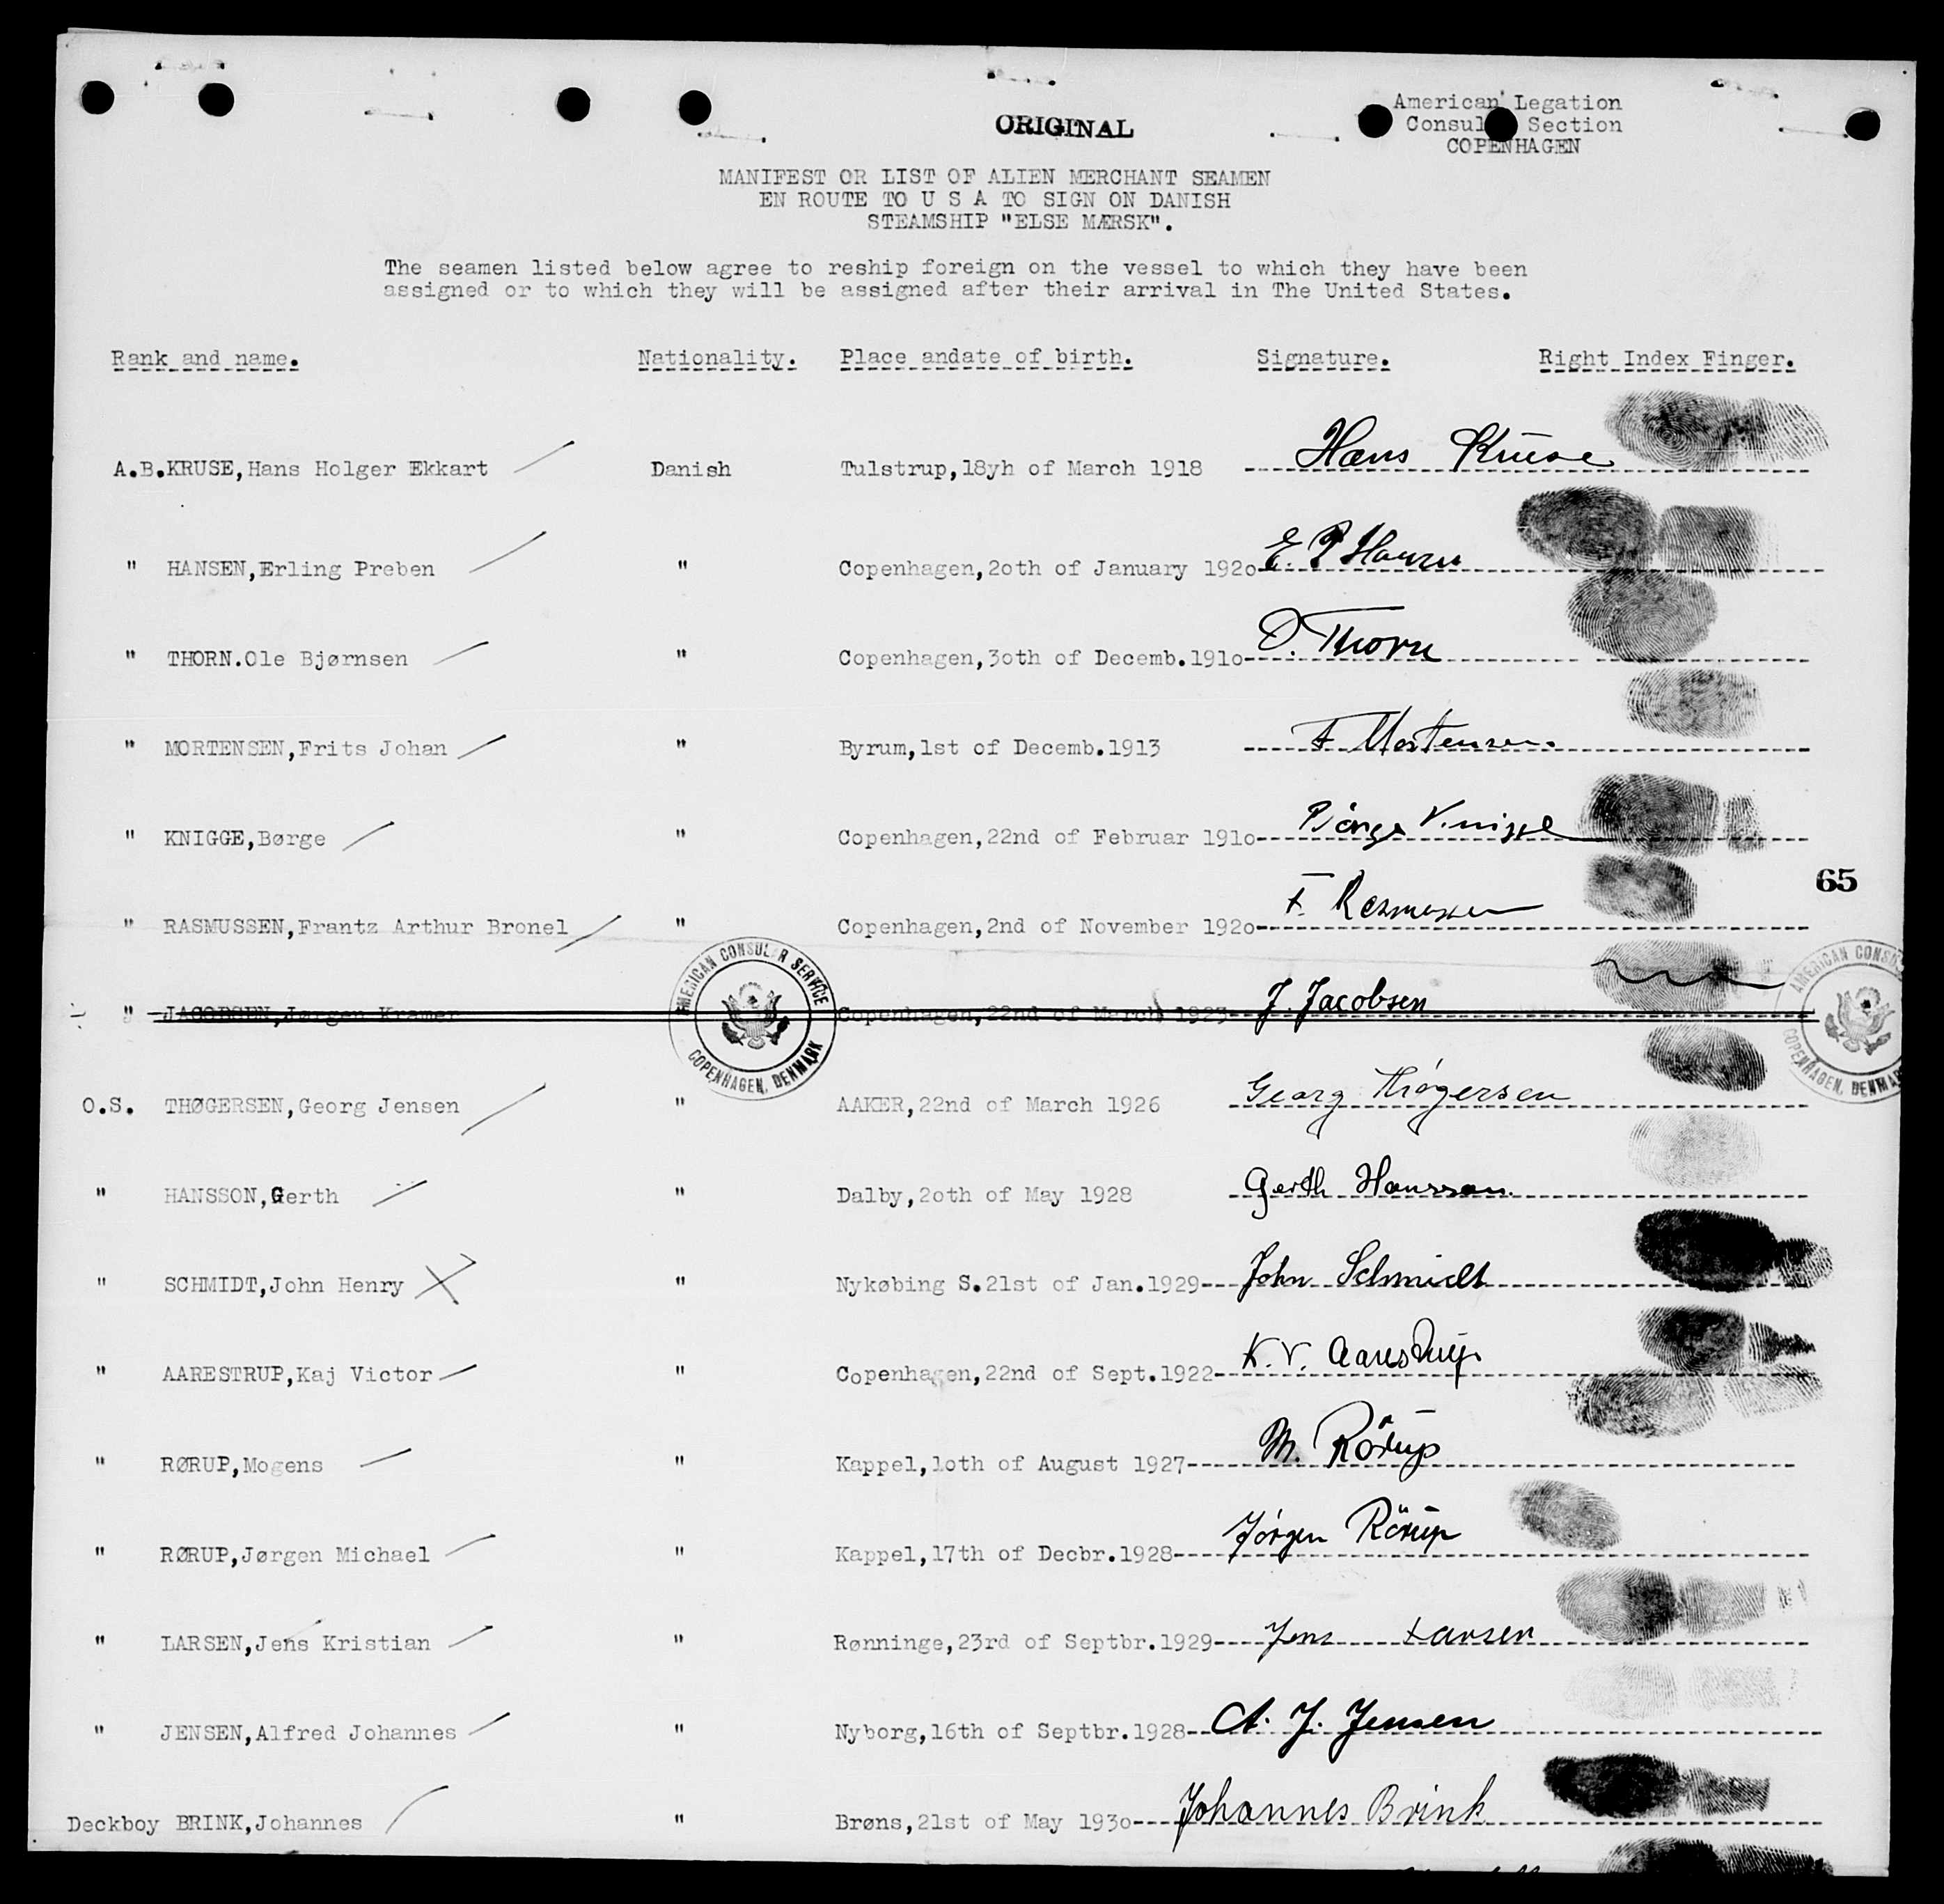 ORIGINAL
American Legation
Consul Section
COPENHAGEN
MANIFEST OR LIST OF ALIEN MERCHANT SEAMEN
EN ROUTE TO U S A TO SIGN ON DANISH
STEAMSHIP "ELSE MÆRSK".
The seamen listed below agree to reship foreign on the vessel to which they have been
assigned or to which they will be assigned after their arrival in The United States.
Rank and name. Nationality. Place andate of birth. Signature. Right Index Finger.
A.B.KRUSE,Hans Holger Ekkart Danish Tulstrup,18yh of March 1918 Hans Kruse
" HANSEN,Erling Preben " Copenhagen,2oth of January 192o E. P Hansen
" THORN.Ole Bjørnsen " Copenhagen,3oth of Decemb.191o O. Thorn
" MORTENSEN,Frits Johan " Byrum,1st of Decemb.1913 F Mortensen.
" KNIGGE,Børge " Copenhagen,22nd of Februar 191o Börge Knigge
65
" RASMUSSEN,Frantz Arthur Bronel " Copenhagen,2nd of November 192o F. Rasmussen
" JACOBSEN,Jørgen Kramer Copenhagen,22nd of March 1923 J. Jacobsen
AMERICAN CONSULAR SERVICE
COPENHAGEN, DENMARK
AMERICAN CONSU
COPENHAGEN, DENMAR
O.S. THØGERSEN,Georg Jensen " AAKER,22nd of March 1926 Georg Thøgersen
" HANSSON,Gerth " Dalby,2oth of May 1928 Gerth Hansson.
" SCHMIDT,John Henry " Nykøbing S.21st of Jan.1929 John Schmidt
" AARESTRUP,Kaj Victor " Copenhagen,22nd of Sept.1922 K. V. Aarestrup
" RØRUP,Mogens " Kappel,1oth of August 1927 M. Rörup
" RØRUP,Jørgen Michael " Kappel,17th of Decbr.1928 Jörgen Rörup
" LARSEN,Jens Kristian " Rønninge,23rd of Septbr.1929 Jens Larsen
" JENSEN,Alfred Johannes " Nyborg,16th of Septbr.1928 A. J. Jensen
Deckboy BRINK,Johannes " Brøns,21st of May 193o Johannes Brink